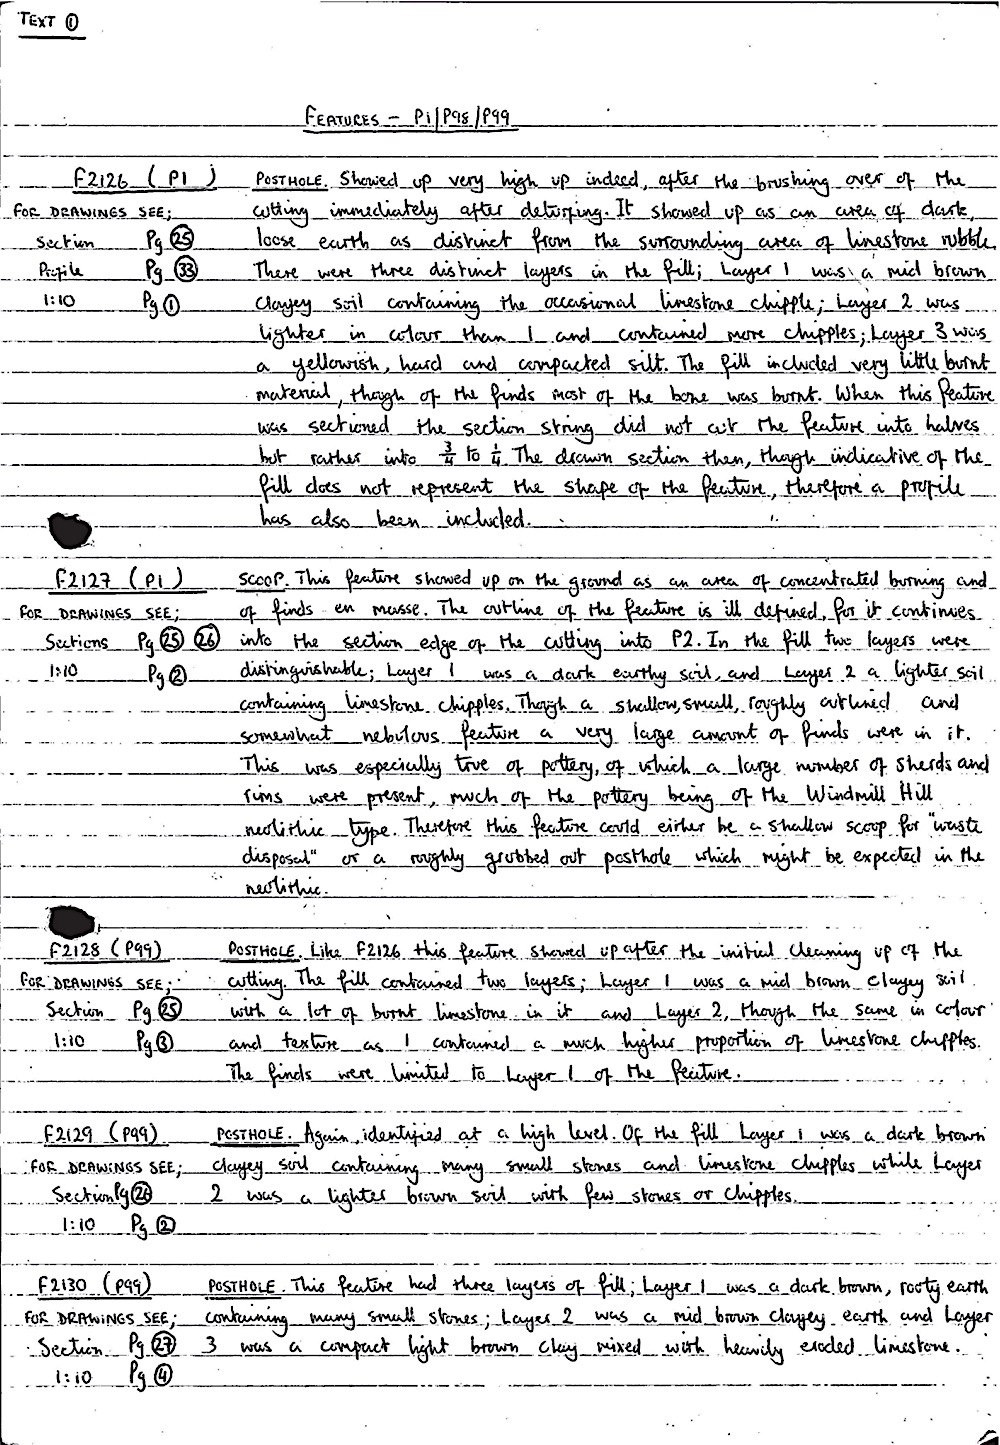 TEXT ①
FEATURES – P1/P98/P99
F2126 (P1) POSTHOLE. Showed up very high up indeed, after the brushing over of the
FOR DRAWINGS SEE; cutting immediately after deturfing. It showed up as an area of dark,
Section Pg ㉕ loose earth as distinct from the surrounding area of limestone rubble.
Profile Pg ㉝ There were three distinct layers in the fill; Layer 1 was a mid brown
1:10 Pg ① clayey soil containing the occasional limestone chipple; Layer 2 was
lighter in colour than 1 and contained more chipples; Layer 3 was
a yellowish, hard and compacted silt. The fill included very little burnt
material, though of the finds most of the bone was burnt. When this feature
was sectioned the section string did not cut the feature into halves
but rather into ¾ to ¼. The drawn section then, though indicative of the
fill does not represent the shape of the feature, therefore a profile
has also been included.
F2127 (P1) SCOOP. This feature showed up on the ground as an area of concentrated burning and
FOR DRAWINGS SEE; of finds en masse. The outline of the feature is ill defined, for it continues
Sections Pg ㉕ ㉖ into the section edge of the cutting into P2. In the fill two layers were
1:10 Pg ② distinguishable; Layer 1 was a dark earthy soil, and Layer 2 a lighter soil
containing limestone chipples. Though a shallow, small, roughly outlined and
somewhat nebulous feature a very large amount of finds were in it.
This was especially true of pottery, of which a large number of sherds and
rims were present, much of the pottery being of the Windmill Hill
neolithic type. Therefore this feature could either be a shallow scoop for "waste
disposal" or a roughly grubbed out posthole which might be expected in the
neolithic.
F2128 (P99) POSTHOLE. Like F2126 this feature showed up after the initial cleaning up of the
FOR DRAWINGS SEE; cutting. The fill contained two layers; Layer 1 was a mid brown clayey soil
Section Pg ㉕ with a lot of burnt limestone in it and Layer 2, though the same in colour
1:10 Pg ③ and texture as 1 contained a much higher proportion of limestone chipples.
The finds were limited to Layer 1 of the feature.
F2129 (P99) POSTHOLE. Again, identified at a high level. Of the fill Layer 1 was a dark brown
FOR DRAWINGS SEE; clayey soil containing many small stones and limestone chipples while Layer
Section Pg ㉖ 2 was a lighter brown soil with few stones or chipples.
1:10 Pg ②
F2130 (P99) POSTHOLE. This feature had three layers of fill; Layer 1 was a dark brown, rooty earth
FOR DRAWINGS SEE; containing many small stones; Layer 2 was a mid brown clayey earth and Layer
Section Pg ㉗ 3 was a compact light brown clay mixed with heavily eroded limestone.
1:10 Pg ④